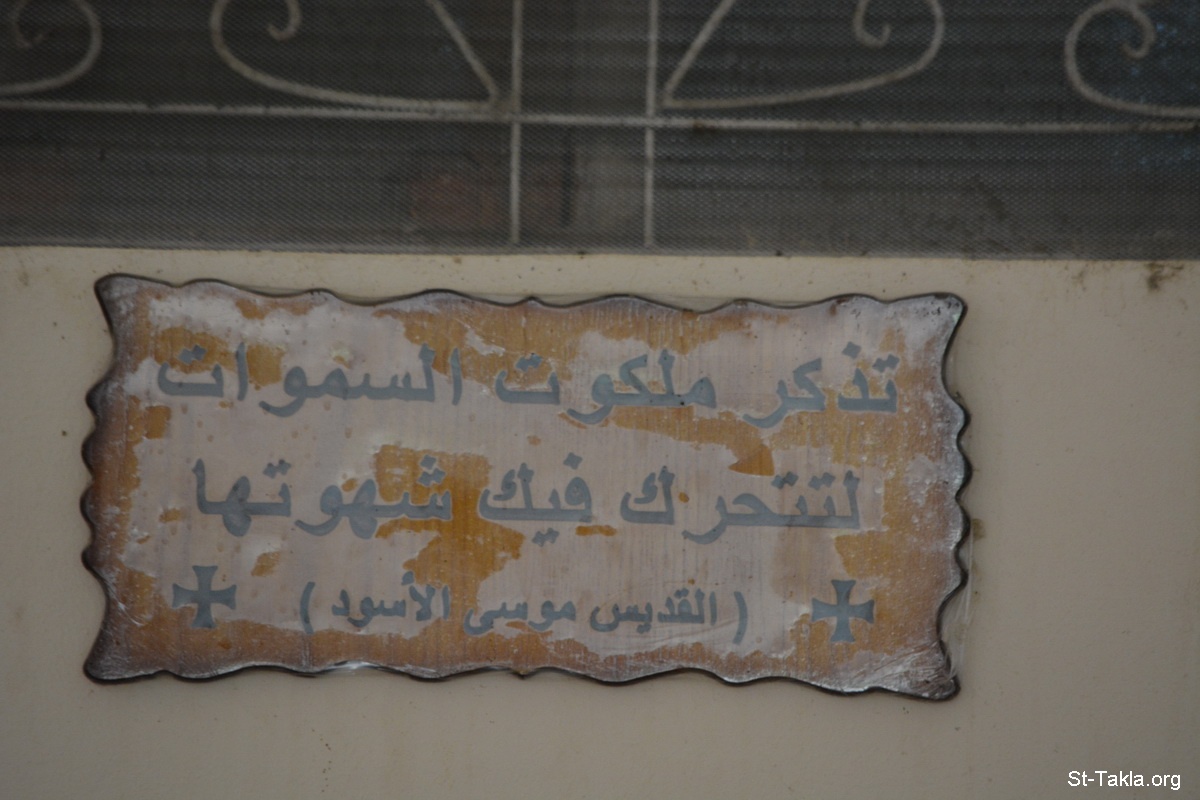 تذكر ملكوت السموات
لتتحرك فيك شهوتها
( القديس موسى الأسود )
St-Takla.org